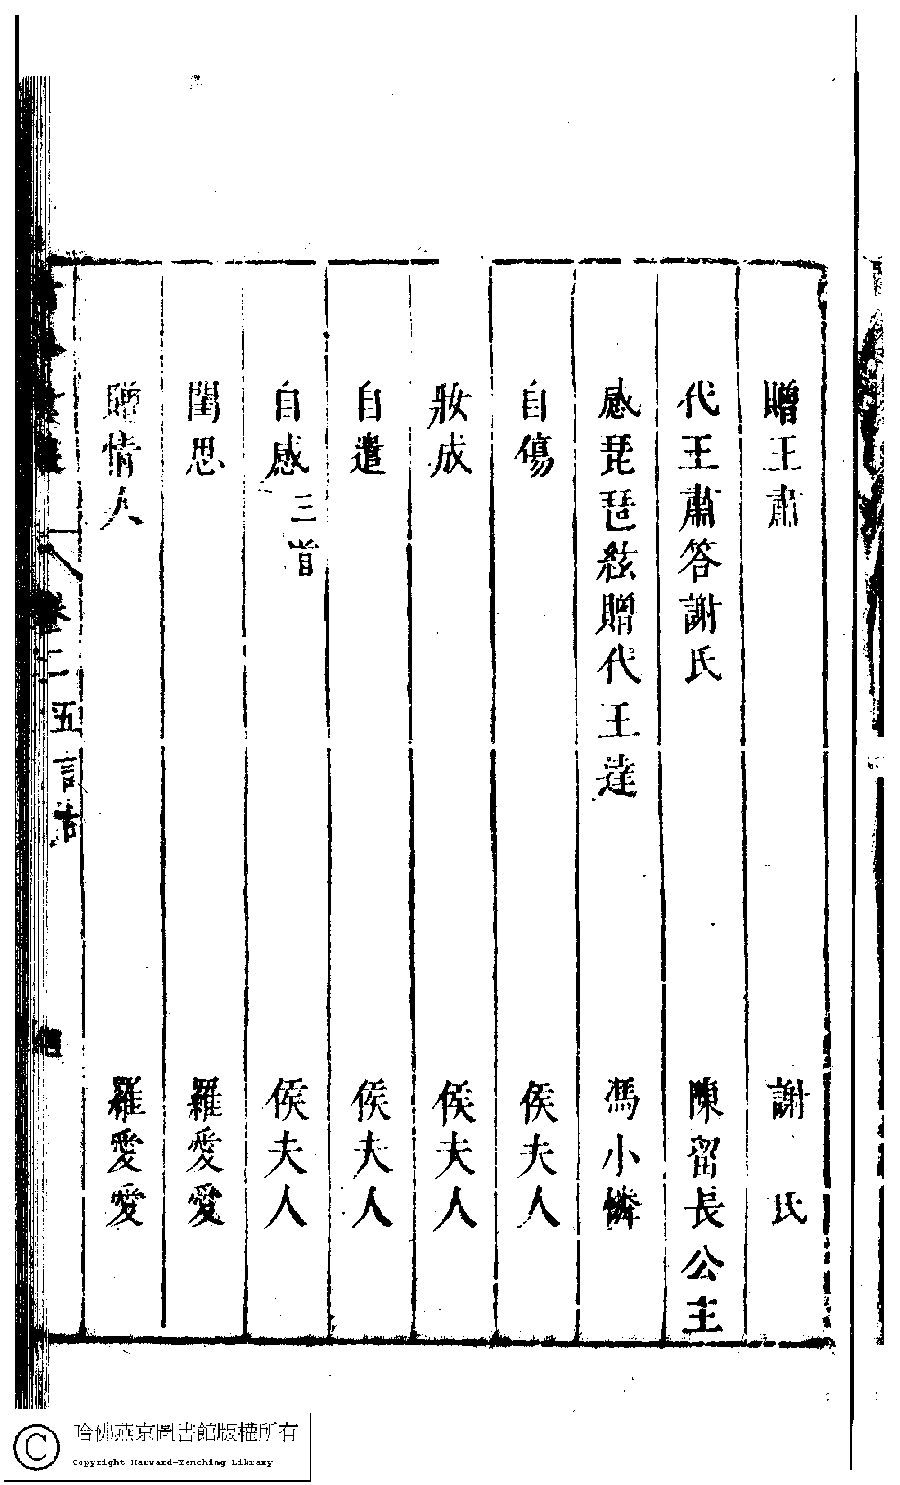 贈王肅　謝氏
代王肅答謝氏　陳留長公主
感琵琶絃贈代王達　馮小憐
自傷　侯夫人
妝成　侯夫人
自遣　侯夫人
自感三首　侯夫人
閨思　羅愛愛
贈情人　羅愛愛
卷二五言古
哈佛燕京圖書館版權所有
Copyright Harvard-Yenching Library